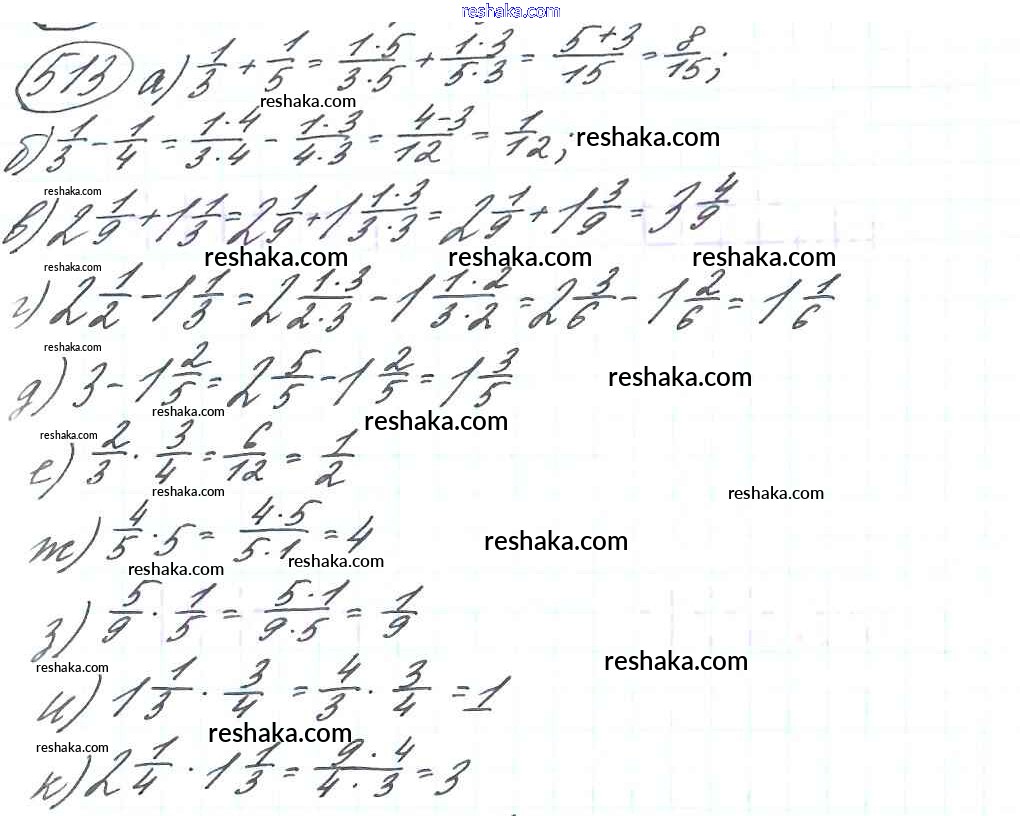 reshaka.com
513 а) 1/3 + 1/5 = 1·5/3·5 + 1·3/5·3 = 5+3/15 = 8/15;
reshaka.com
б) 1/3 - 1/4 = 1·4/3·4 - 1·3/4·3 = 4-3/12 = 1/12; reshaka.com
reshaka.com
в) 2 1/9 + 1 1/3 = 2 1/9 + 1 1·3/3·3 = 2 1/9 + 1 3/9 = 3 4/9
reshaka.com reshaka.com reshaka.com
reshaka.com
г) 2 1/2 - 1 1/3 = 2 1·3/2·3 - 1 1·2/3·2 = 2 3/6 - 1 2/6 = 1 1/6
reshaka.com
д) 3 - 1 2/5 = 2 5/5 - 1 2/5 = 1 3/5 reshaka.com
reshaka.com reshaka.com
reshaka.com
е) 2/3 · 3/4 = 6/12 = 1/2
reshaka.com reshaka.com
ж) 4/5 · 5 = 4·5/5·1 = 4 reshaka.com
reshaka.com reshaka.com
з) 5/9 · 1/5 = 5·1/9·5 = 1/9
reshaka.com reshaka.com
и) 1 1/3 · 3/4 = 4/3 · 3/4 = 1
reshaka.com reshaka.com
к) 2 1/4 · 1 1/3 = 9·4/4·3 = 3